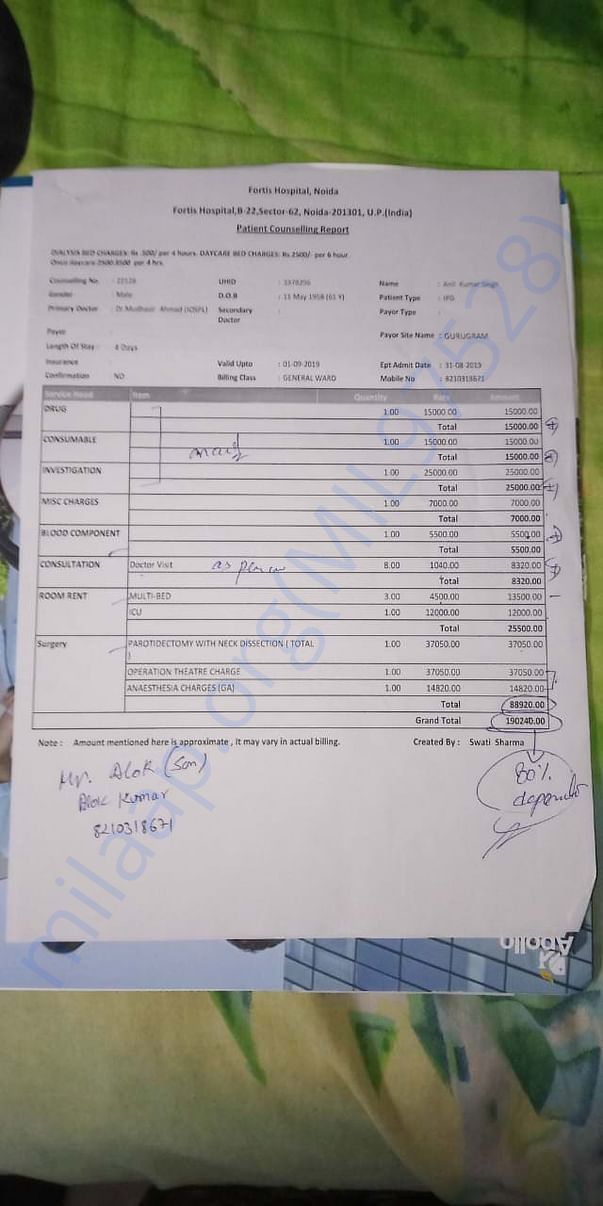 Fortis Hospital, Noida
Fortis Hospital,B-22,Sector-62, Noida-201301, U.P.(India)
Patient Counselling Report
DIALYSIS BED CHARGES: Rs. 500/ per 4 hours. DAYCARE BED CHARGES: Rs 2500/- per 6 hour
per 4 hrs.
Counselling No. : 22128 UHID : 3378256 Name : Anil Kumar Singh
Gender : Male D.O.B : 11 May 1958 (61 Y) Patient Type : IPD
Primary Doctor : Dr Mudhasir Ahmad Secondary Doctor Payor Type :
Payor Payor Site Name : GURUGRAM
Length Of Stay : 4 Days
Insurance : Valid Upto : 01-09-2019 Ept Admit Date : 31-08-2019
Confirmation NO Billing Class : GENERAL WARD Mobile No : 8210318671
Service Head Item Quantity Rate Amount
DRUG 1.00 15000.00 15000.00
Total 15000.00
CONSUMABLE 1.00 15000.00 15000.00
Total 15000.00
INVESTIGATION 1.00 25000.00 25000.00
Total 25000.00
MISC CHARGES 1.00 7000.00 7000.00
Total 7000.00
BLOOD COMPONENT 1.00 5500.00 5500.00
Total 5500.00
CONSULTATION Doctor Visit as per 8.00 1040.00 8320.00
Total 8320.00
ROOM RENT MULTI-BED 3.00 4500.00 13500.00
ICU 1.00 12000.00 12000.00
Total 25500.00
Surgery PAROTIDECTOMY WITH NECK DISSECTION ( TOTAL ) 1.00 37050.00 37050.00
OPERATION THEATRE CHARGE 1.00 37050.00 37050.00
ANAESTHESIA CHARGES (GA) 1.00 14820.00 14820.00
Total 88920.00
Grand Total 190240.00
Note : Amount mentioned here is approximate , it may vary in actual billing. Created By : Swati Sharma
Mr. Alok (Son)
Alok Kumar
8210318671
80%
Apollo
milaap.org(MIL97528)